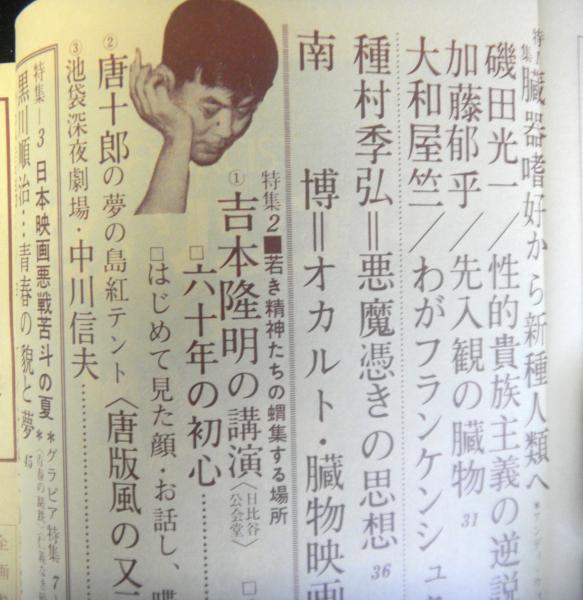 特集
臓器嗜好から新種人類へ
磯田光一／性的貴族主義の逆説
加藤郁乎／先入観の臓物31
大和屋竺／わがフランケンシュ
種村季弘＝悪魔憑きの思想36
南　博＝オカルト・臓物映画
特集2■若き精神たちの蝟集する場所
①吉本隆明の講演〈日比谷公会堂〉
□六十年の初心……
□はじめて見た顔・お話し、喋
②唐十郎の夢の島紅テント〈唐版風の又三
③池袋深夜劇場・中川信夫……
特集—3 日本映画悪戦苦斗の夏＊グラビア特集7
黒川順治…青春の貌と夢45